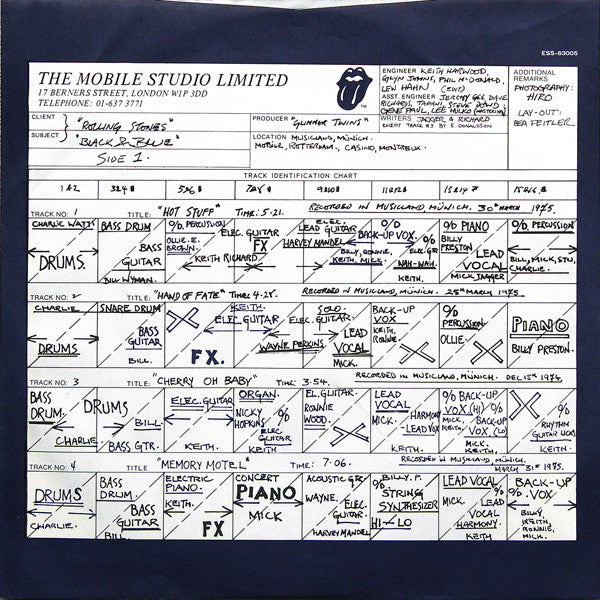 ESS-63005
THE MOBILE STUDIO LIMITED
17 BERNERS STREET, LONDON W1P 3DD
TELEPHONE: 01-637 3771
ENGINEER KEITH HARWOOD,
GLYN JOHNS, PHIL McDONALD,
LEW HAHN (EDIT)
ASST. ENGINEER JEREMY GEE, DAVE
RICHARDS, TAPANI, STEVE DOWD;
GENE PAUL, LEE HULKO (MASTERING)
WRITERS JAGGER & RICHARD
EXCEPT TRACK #3 BY E. DONALDSON
ADDITIONAL
REMARKS
PHOTOGRAPHY:
HIRO
LAY-OUT:
BEA FEITLER
CLIENT "ROLLING STONES"
SUBJECT "BLACK & BLUE"
SIDE 1.
PRODUCER "GLIMMER TWINS"
LOCATION MUSICLAND, MÜNICH.
MOBILE, ROTTERDAM., CASINO, MONTREUX.
TRACK IDENTIFICATION CHART
TRACK NO: 1 TITLE: "HOT STUFF" TIME: 5-21. RECORDED IN MUSICLAND, MÜNICH. 30th MARCH 1975.
CHARLIE WATTS
DRUMS.
BASS DRUM
BASS
GUITAR
BILL WYMAN.
% PERCUSSION
OLLIE. E.
BROWN.
KEITH RICHARD
ELEC GUITAR
FX
ELEC.
LEAD GUITAR
HARVEY MANDEL
O/D
BACK-UP VOX.
BILL, RONNIE,
KEITH, MICK
% ELEC. GTR
WAH-WAH.
KEITH.
% PIANO
BILLY
PRESTON
LEAD
VOCAL
MICK JAGGER
%. PERCUSSION
BILL, MICK, STU,
CHARLIE.
TRACK NO: 2 TITLE: "HAND OF FATE" TIME: 4-28. RECORDED IN MUSICLAND, MÜNICH. 25th MARCH 1975
CHARLIE
DRUMS
SNARE DRUM
BASS
GUITAR
BILL.
FX.
KEITH.
ELEC. GUITAR
WAYNE PERKINS
SOLO.
ELEC. GUITAR
LEAD
VOCAL
MICK.
BACK-UP
VOX
KEITH,
RONNIE.
%
PERCUSSION
OLLIE.
PIANO
BILLY PRESTON.
TRACK NO: 3 TITLE: "CHERRY OH BABY" TIME: 3-54. RECORDED IN MUSICLAND, MÜNICH. DEC 15th 1974.
BASS
DRUM.
CHARLIE.
DRUMS
BILL.
BASS GTR.
ELEC. GUITAR
KEITH.
ORGAN.
NICKY
HOPKINS
%
ELEC.
GUITAR
KEITH
EL. GUITAR.
RONNIE
WOOD.
LEAD
VOCAL
MICK.
HARMONY
LEAD VOX
KEITH.
% BACK-UP
VOX. (HI) %
MICK. BACK-UP
KEITH. VOX. (LO)
MICK.
KEITH.
%
RHYTHM
GUITAR
KEITH.
TRACK NO: 4 TITLE "MEMORY MOTEL" TIME: 7-06. RECORDED IN MUSICLAND, MÜNICH.
MARCH 31st 1975.
DRUMS
CHARLIE.
BASS
DRUM.
BASS
GUITAR
BILL.
ELECTRIC
PIANO.
KEITH.
FX
CONCERT
PIANO
MICK
ACOUSTIC GTR
WAYNE.
ELEC.
GUITAR.
HARVEY MANDEL
BILLY. P.
%
STRING
SYNTHESIZER
HI-LO
LEAD VOCAL
MICK.
%
LEAD
VOCAL
HARMONY
KEITH
BACK-UP
% VOX.
BILLY,
KEITH,
RONNIE,
MICK.